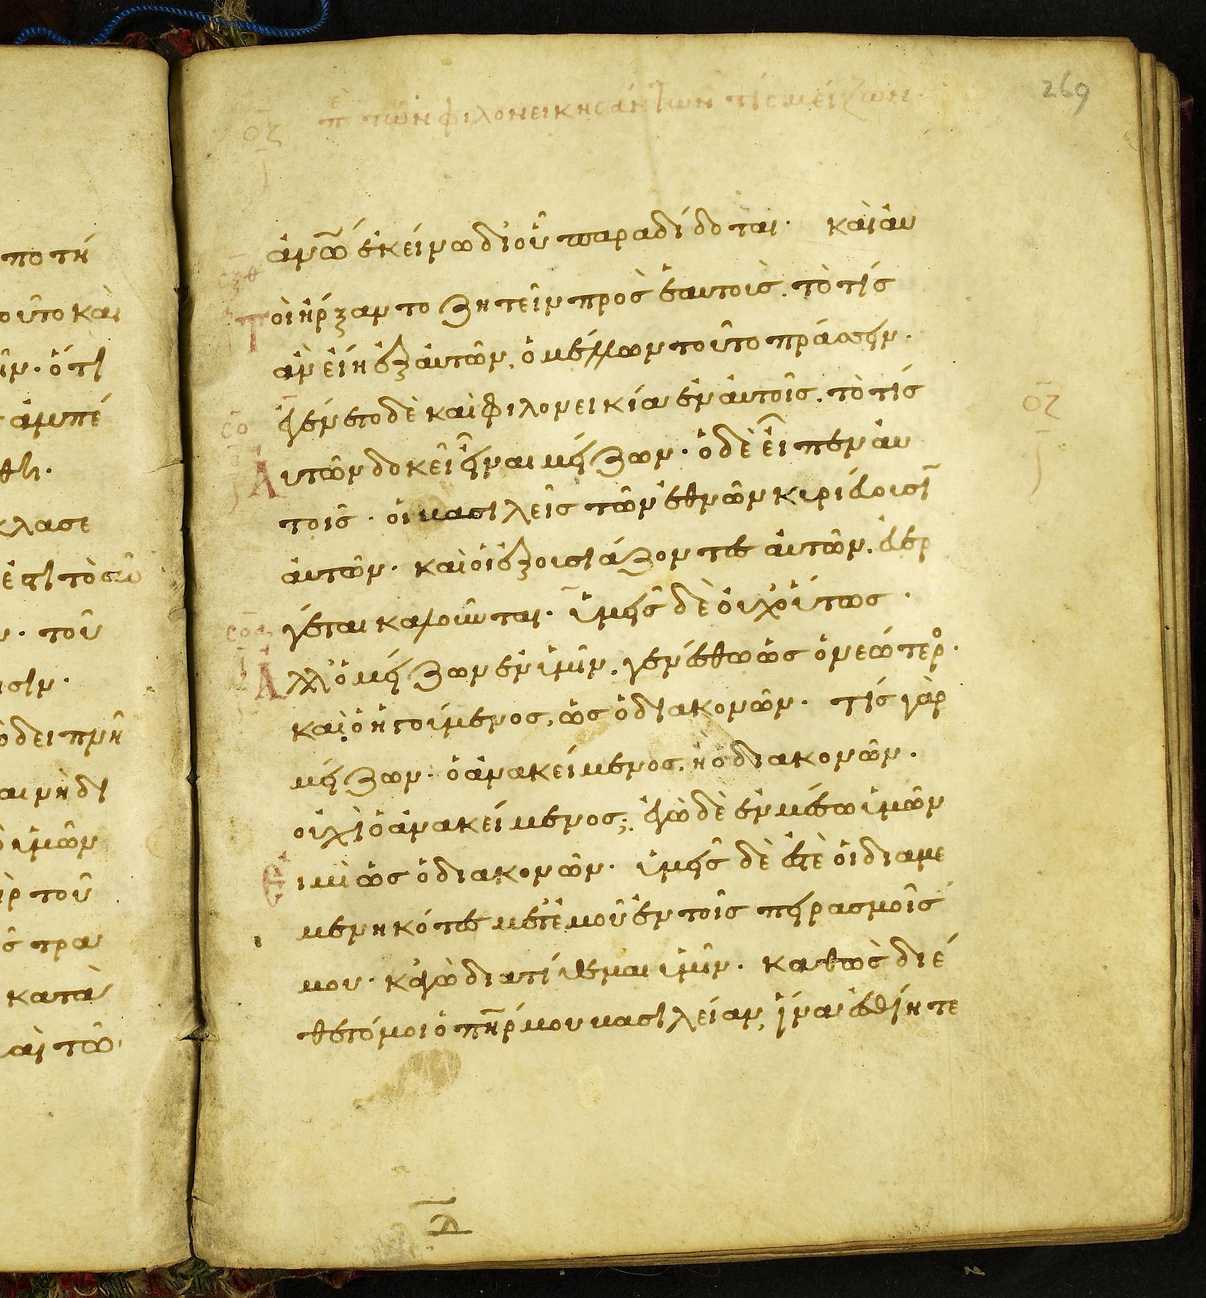 269
οζ πε τῶν φιλονεικησάντων τίς μείζων
ποτή
οῦτο καὶ
ὅτι
ἀμπέ
κλασε
ἐστὶ τὸ σῶ
τοῦ
ὑμῶν
τοῦ
τρα
κατὰ
αὶ τῶ
ἀνῶ ἐκείνω δι' οὗ παραδίδοται· καὶ αυ
τοὶ ἤρξαντο ζητεῖν πρὸς ἑαυτοὺς. τὸ τίς
ἂν εἴη ἐξ αὐτῶν, ὁ μέλλων τοῦτο πράσσειν.
ἐγένετο δὲ καὶ φιλονεικία ἐν αὐτοῖς. τὸ τίς
Αὐτῶν δοκεῖ εἶναι μείζων· ὁ δὲ εἶπεν αυ
τοῖς· οἱ βασιλεῖς τῶν ἐθνῶν κυριεύουσιν
αὐτῶν· καὶ οἱ ἐξουσιάζοντες αὐτῶν, εὐερ
γέται καλοῦνται· ὑμεῖς δὲ οὐχ οὕτως·
Ἀλλ' ὁ μείζων ἐν ὑμῖν, γενέσθω ὡς ὁ νεώτερος·
καὶ ὁ ἡγούμενος, ὡς ὁ διακονῶν· τίς γὰρ
μείζων· ὁ ἀνακείμενος, ἢ ὁ διακονῶν·
οὐχὶ ὁ ἀνακείμενος; ἐγὼ δὲ ἐν μέσω ὑμῶν
εἰμὶ ὡς ὁ διακονῶν· ὑμεῖς δὲ ἐστὲ οἱ διαμε
μενηκότες μετ' ἐμοῦ ἐν τοῖς πειρασμοῖς
μου· κἀγὼ διατίθεμαι ὑμῖν· καθὼς διέ
θετό μοι ὁ πηρ μου βασιλείαν, ἵνα ἐσθίητε
οζ